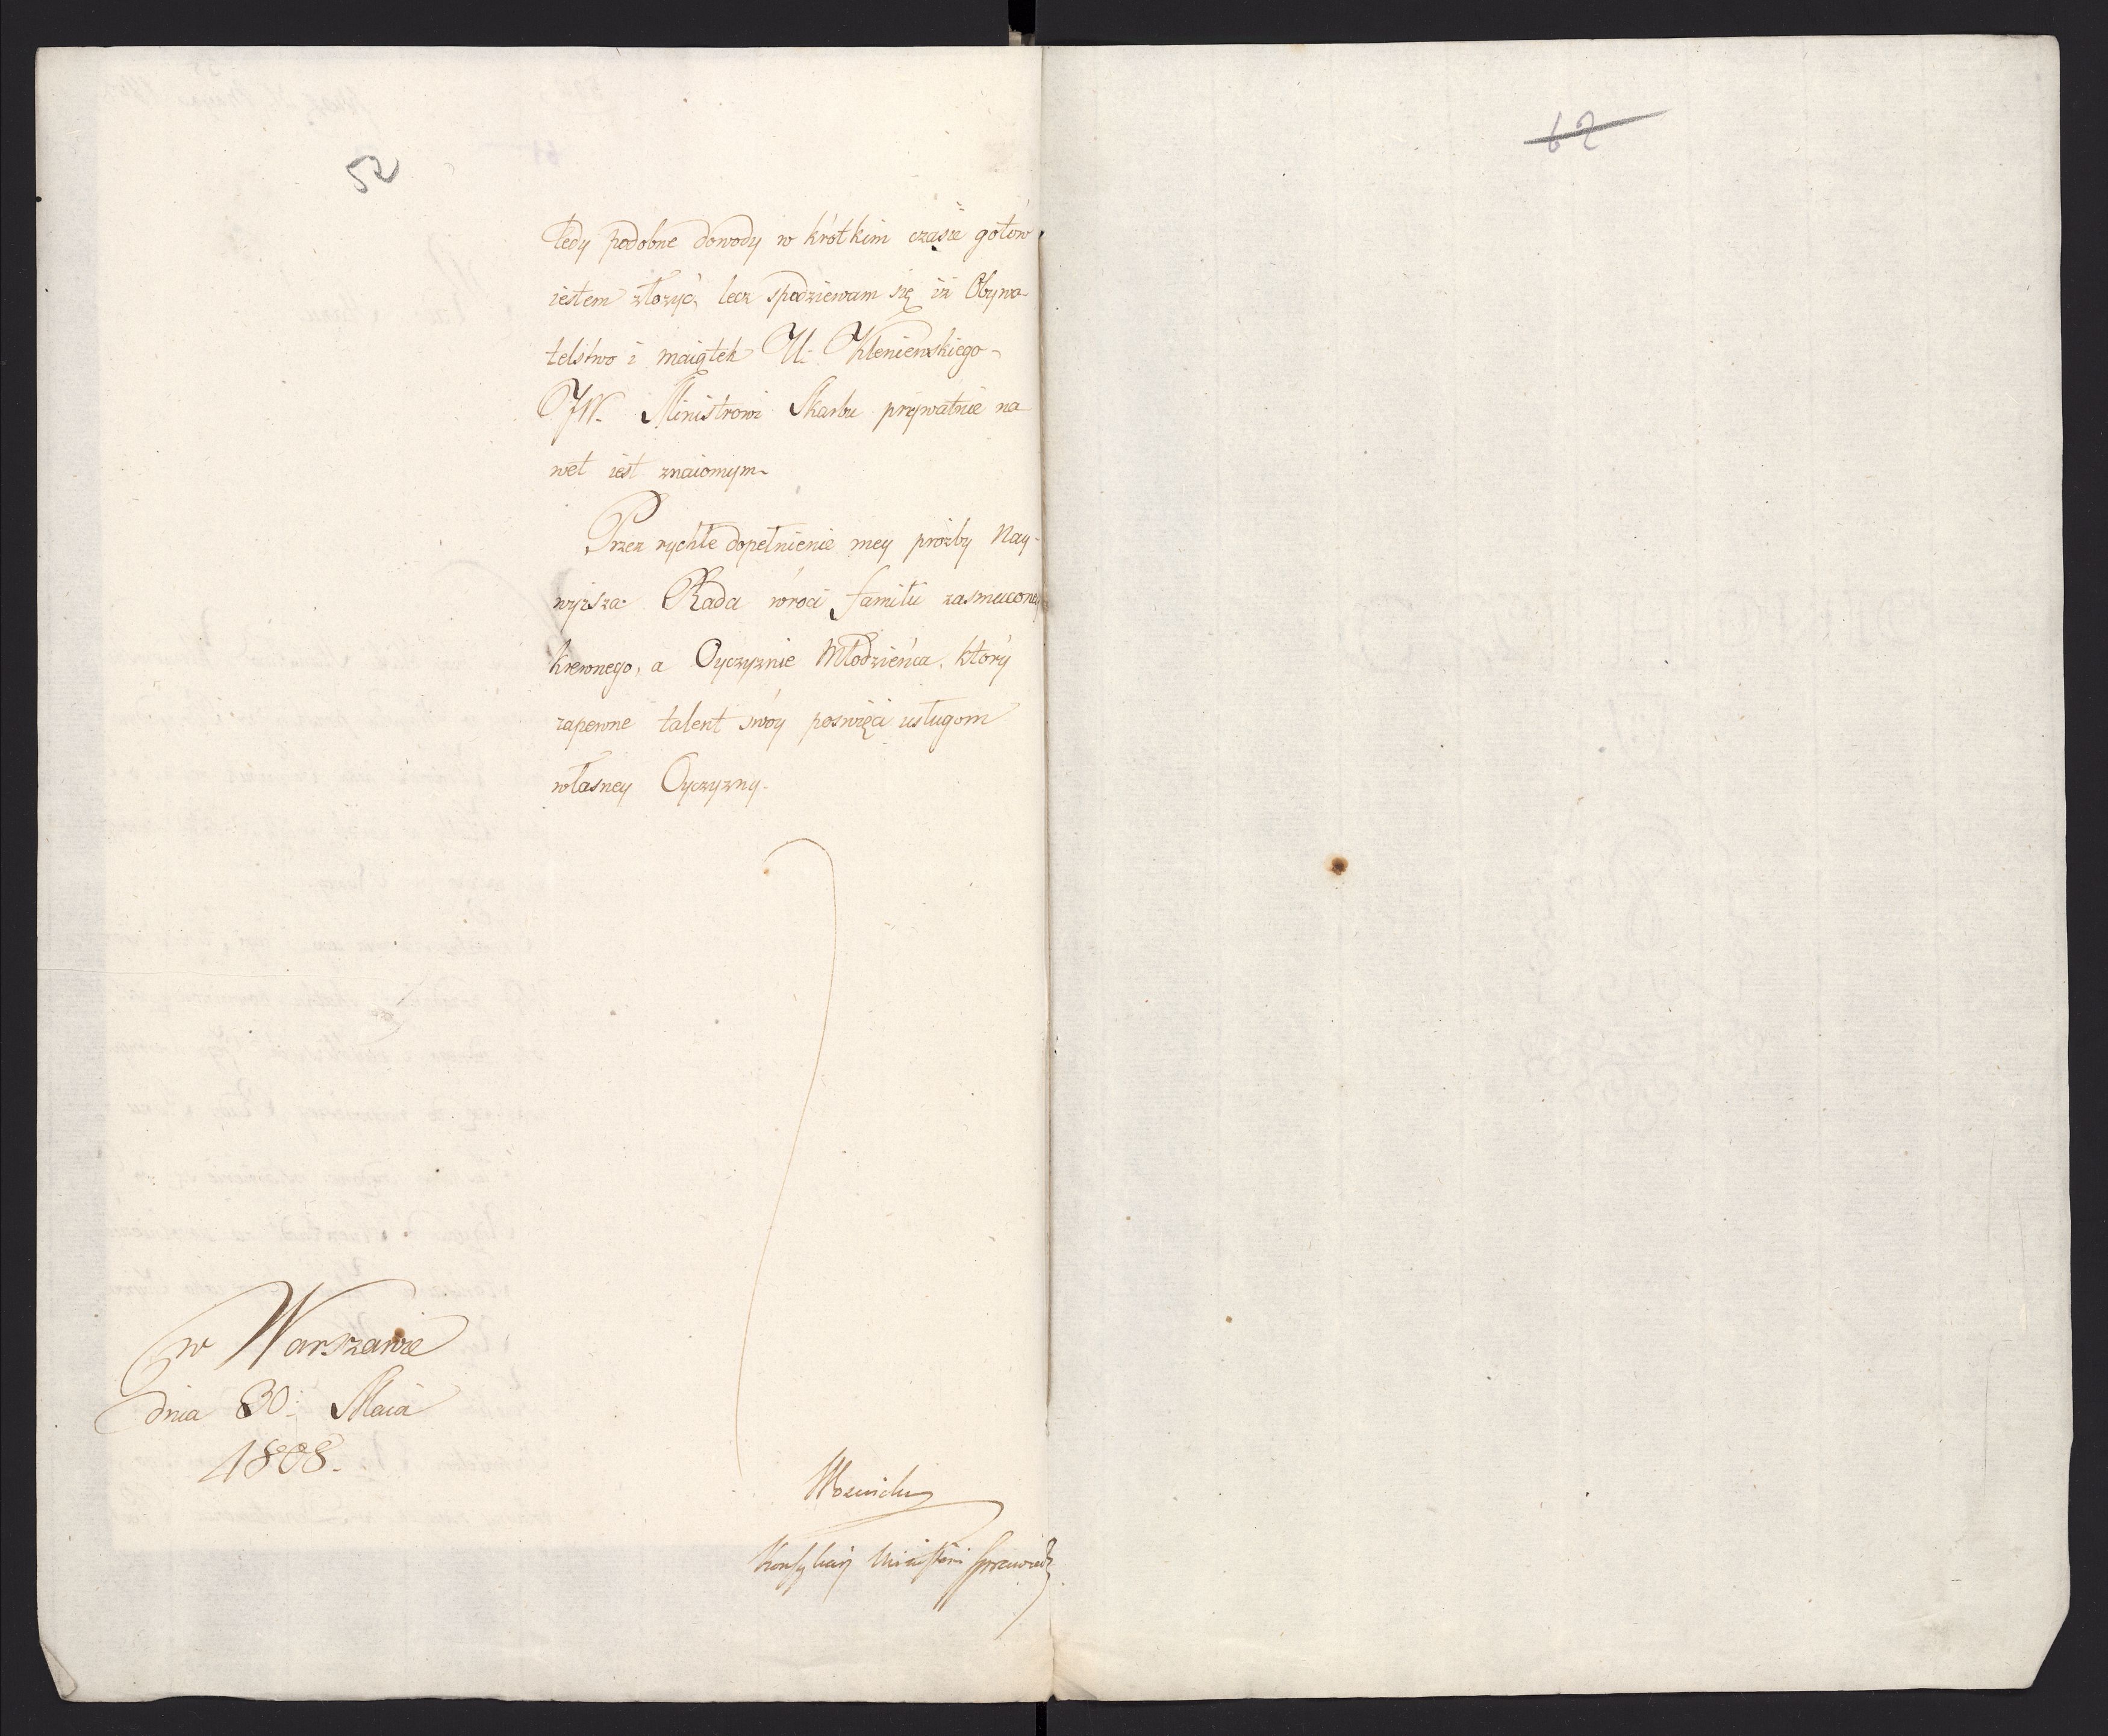 52
tedy podobne dowody w krótkim czasie gotów
iestem złożyć, lecz spodziewam się iż Obywa-
telstwo i maiątek U. Kleniewskiego
JW. Ministrowi Skarbu prywatnie na
wet iest znaiomym.
Przez rychłe dopełnienie mey prożby Nay-
wyższa Rada wroci familii zasmuconey
krewnego, a Oyczyznie Młodzieńca, który
zapewne talent swóy poswięci usługom
własney Oyczyzny.
w Warszawie
dnia 30. Maia
1808.
Konsyliarz Ministeri Sprawiedl
62